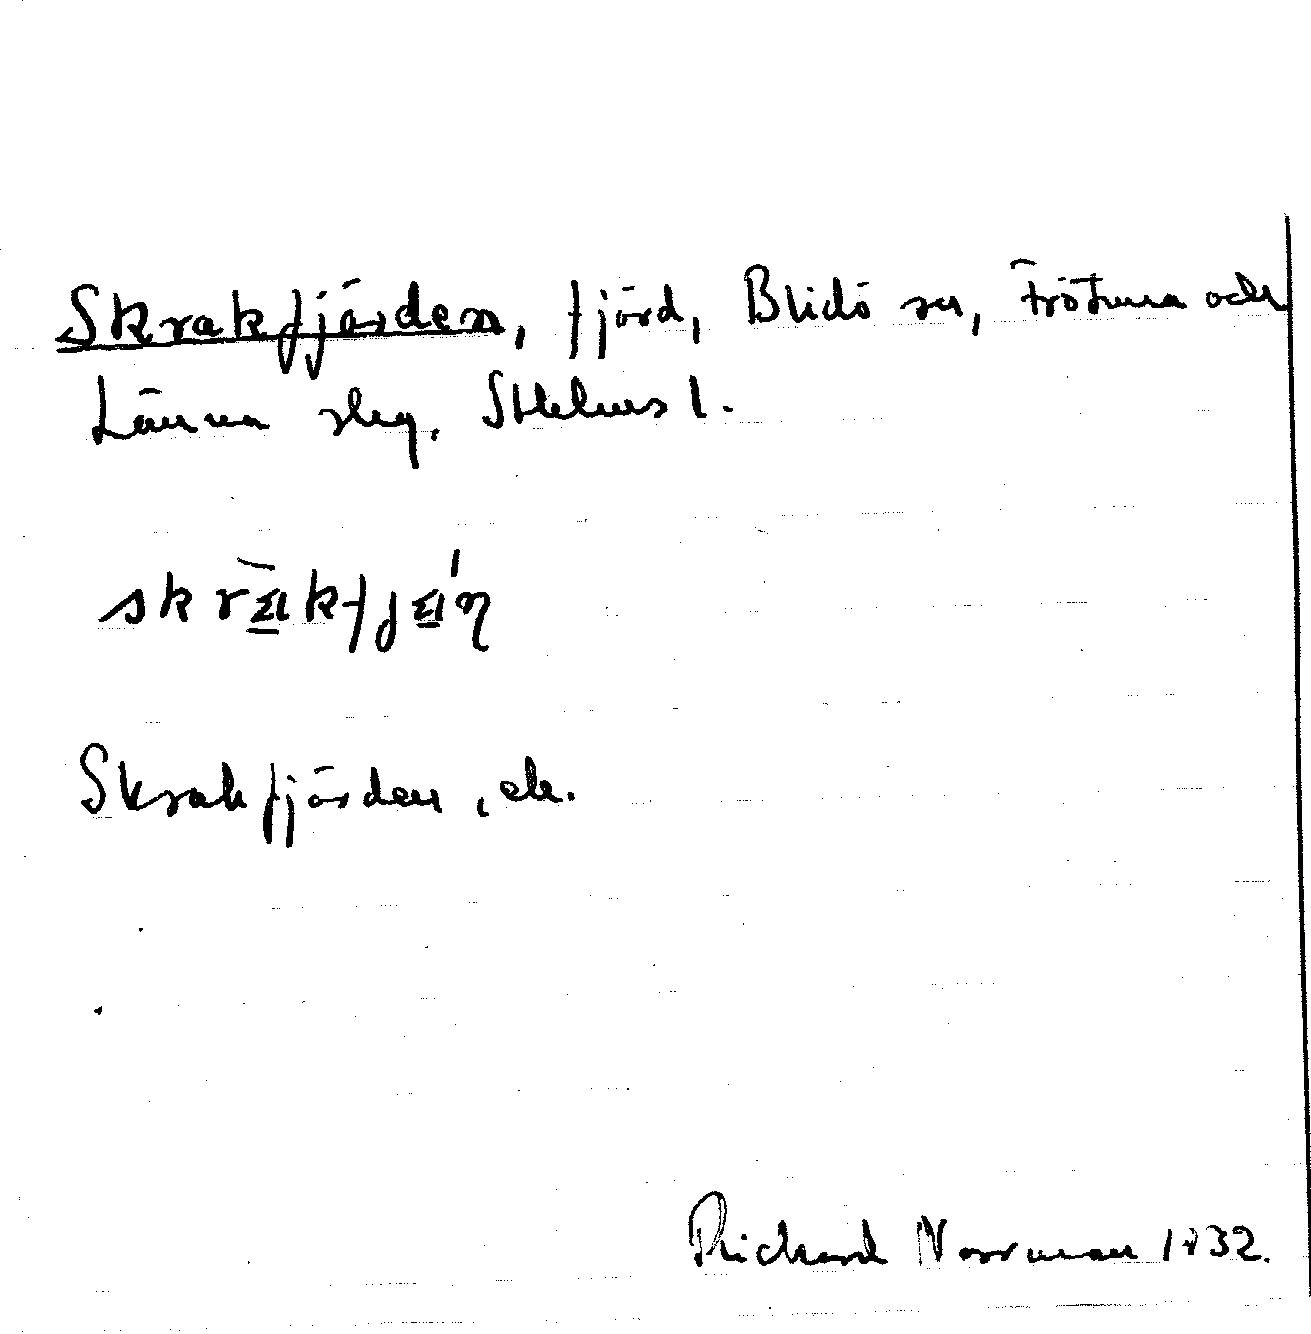 Skrakfjärden, fjärd, Blidö sn, Frötuna och
Länna skg. Sthlms l.
Skrakfjärden, ek.
Richard Norrman 1932.